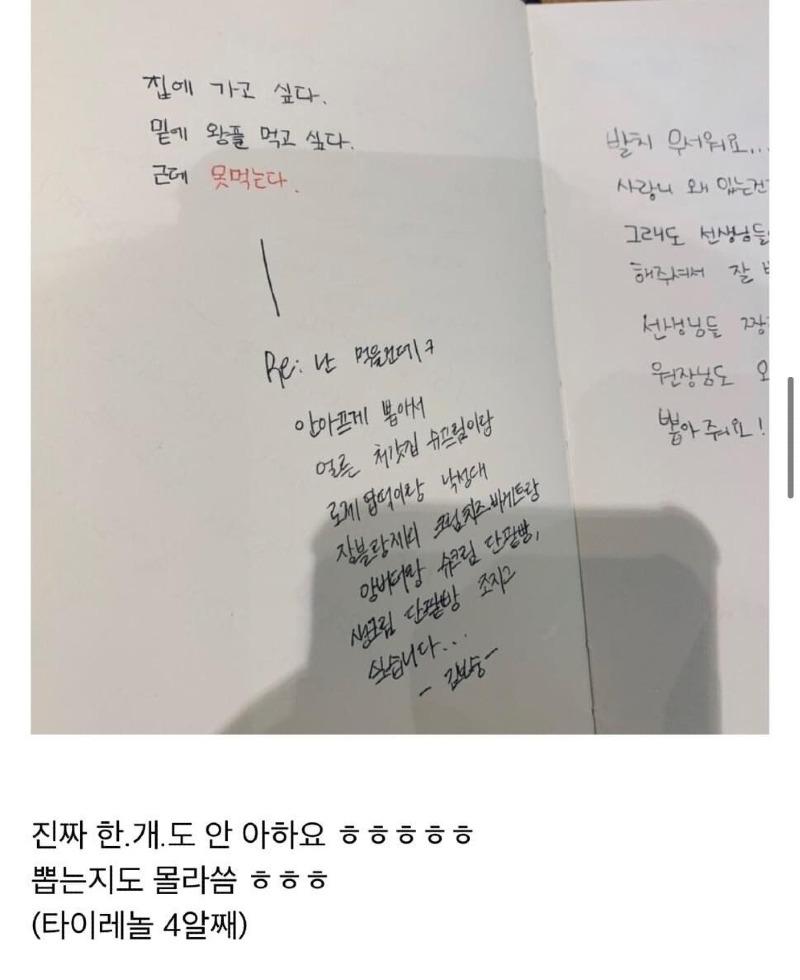 집에 가고 싶다.
밑에 왕플 먹고 싶다.
근데 못먹는다.
Re: 난 먹을건데ㅋ
안아프게 뽑아서
얼른 처갓집 슈프림이랑
로제떡이랑 낙성대
장블랑제리 크림치즈바게트랑
앙버터랑 슈크림 단팥빵,
생크림 단팥빵 조지고
싶습니다...
발치 무서워요...
사랑니 왜 있는건
그래도 선생님들
해주셔서 잘
선생님들 짱
원장님도
뽑아 줘요!
진짜 한.개.도 안 아하요 ㅎㅎㅎㅎㅎ
뽑는지도 몰라씀 ㅎㅎㅎ
(타이레놀 4알째)